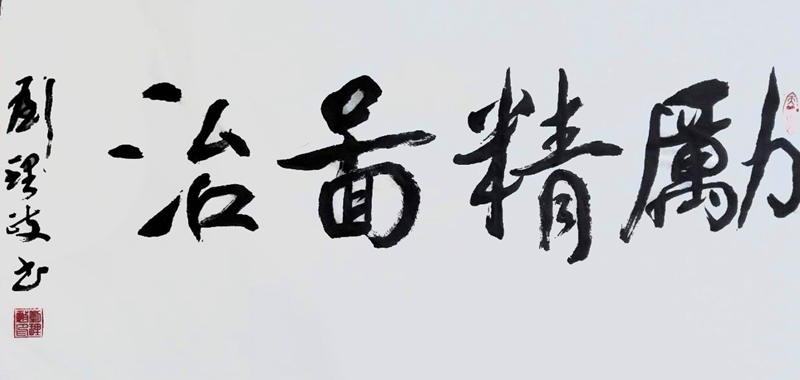 勵精圖治
劉理政书